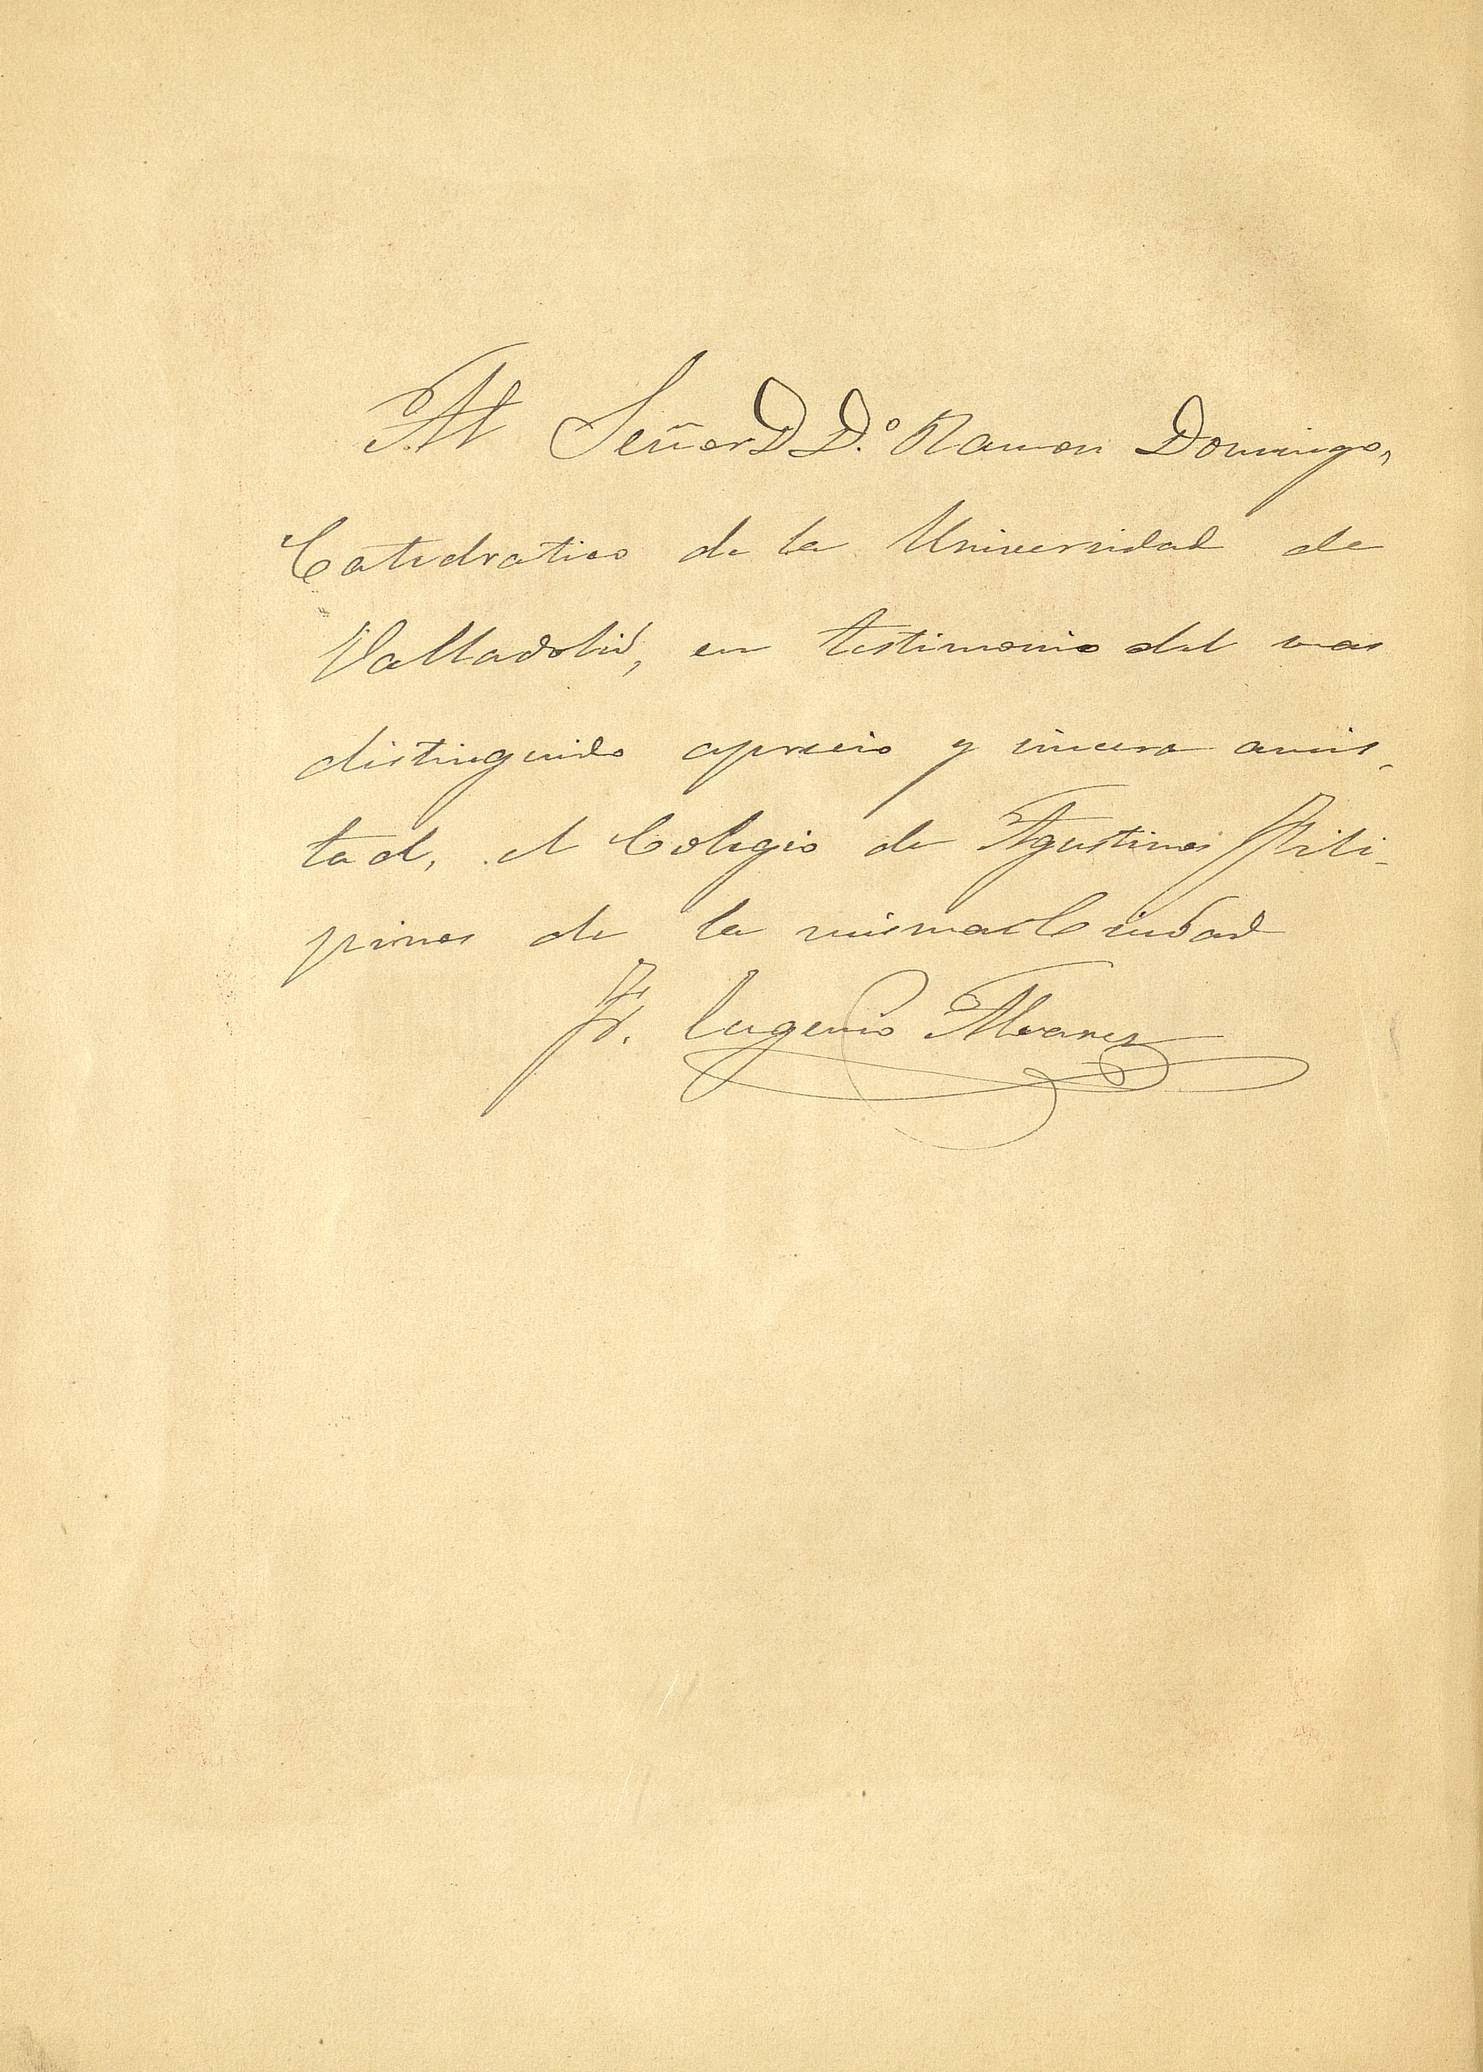 Al Señor D D.º Ramon Domingo,
Catedratico de la Universidad de
Valladolid, en testimonio del mas
distinguido aprecio y sincera amis-
tad, el Colegio de Agustinos Fili-
pinos de la misma Ciudad
Fr. Eugenio Alvarez